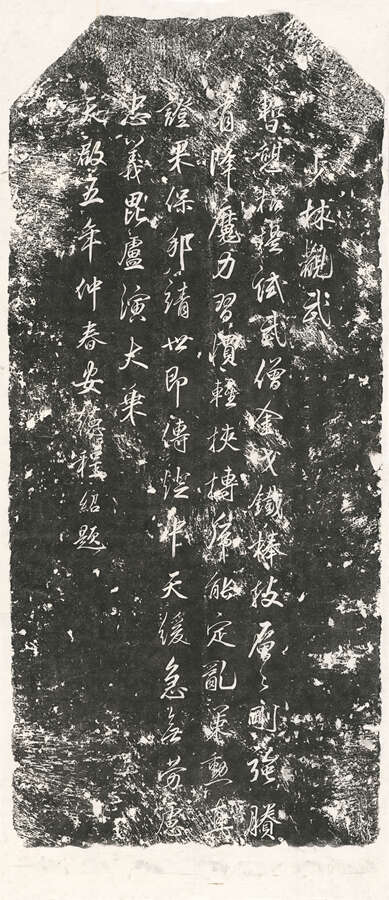 少林觀武
暫憩招提試武僧金戈鐵棒技層〻剛強賸
有降魔力習慣輕挾搏虎能定亂策勳真
證果保邦靖世即傳燈中天緩急無勞慮
忠義毘盧演大乘
天啟五年仲春安德程紹題